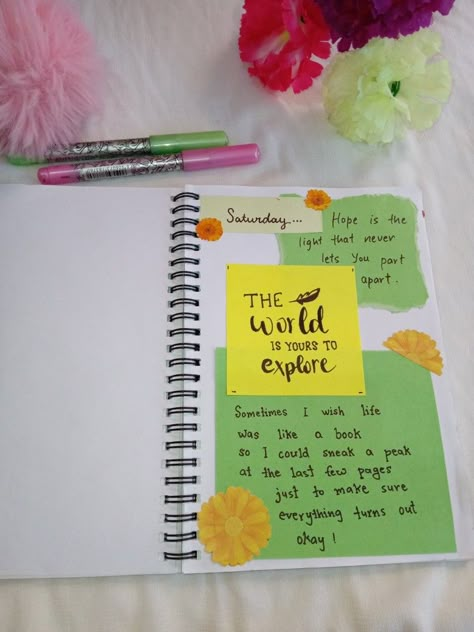 Saturday...
Hope is the
light that never
lets You part
apart.
THE
World
IS YOURS TO
explore
Sometimes I wish life
was like a book
so I could sneak a peak
at the last few pages
just to make sure
everything turns out
okay!